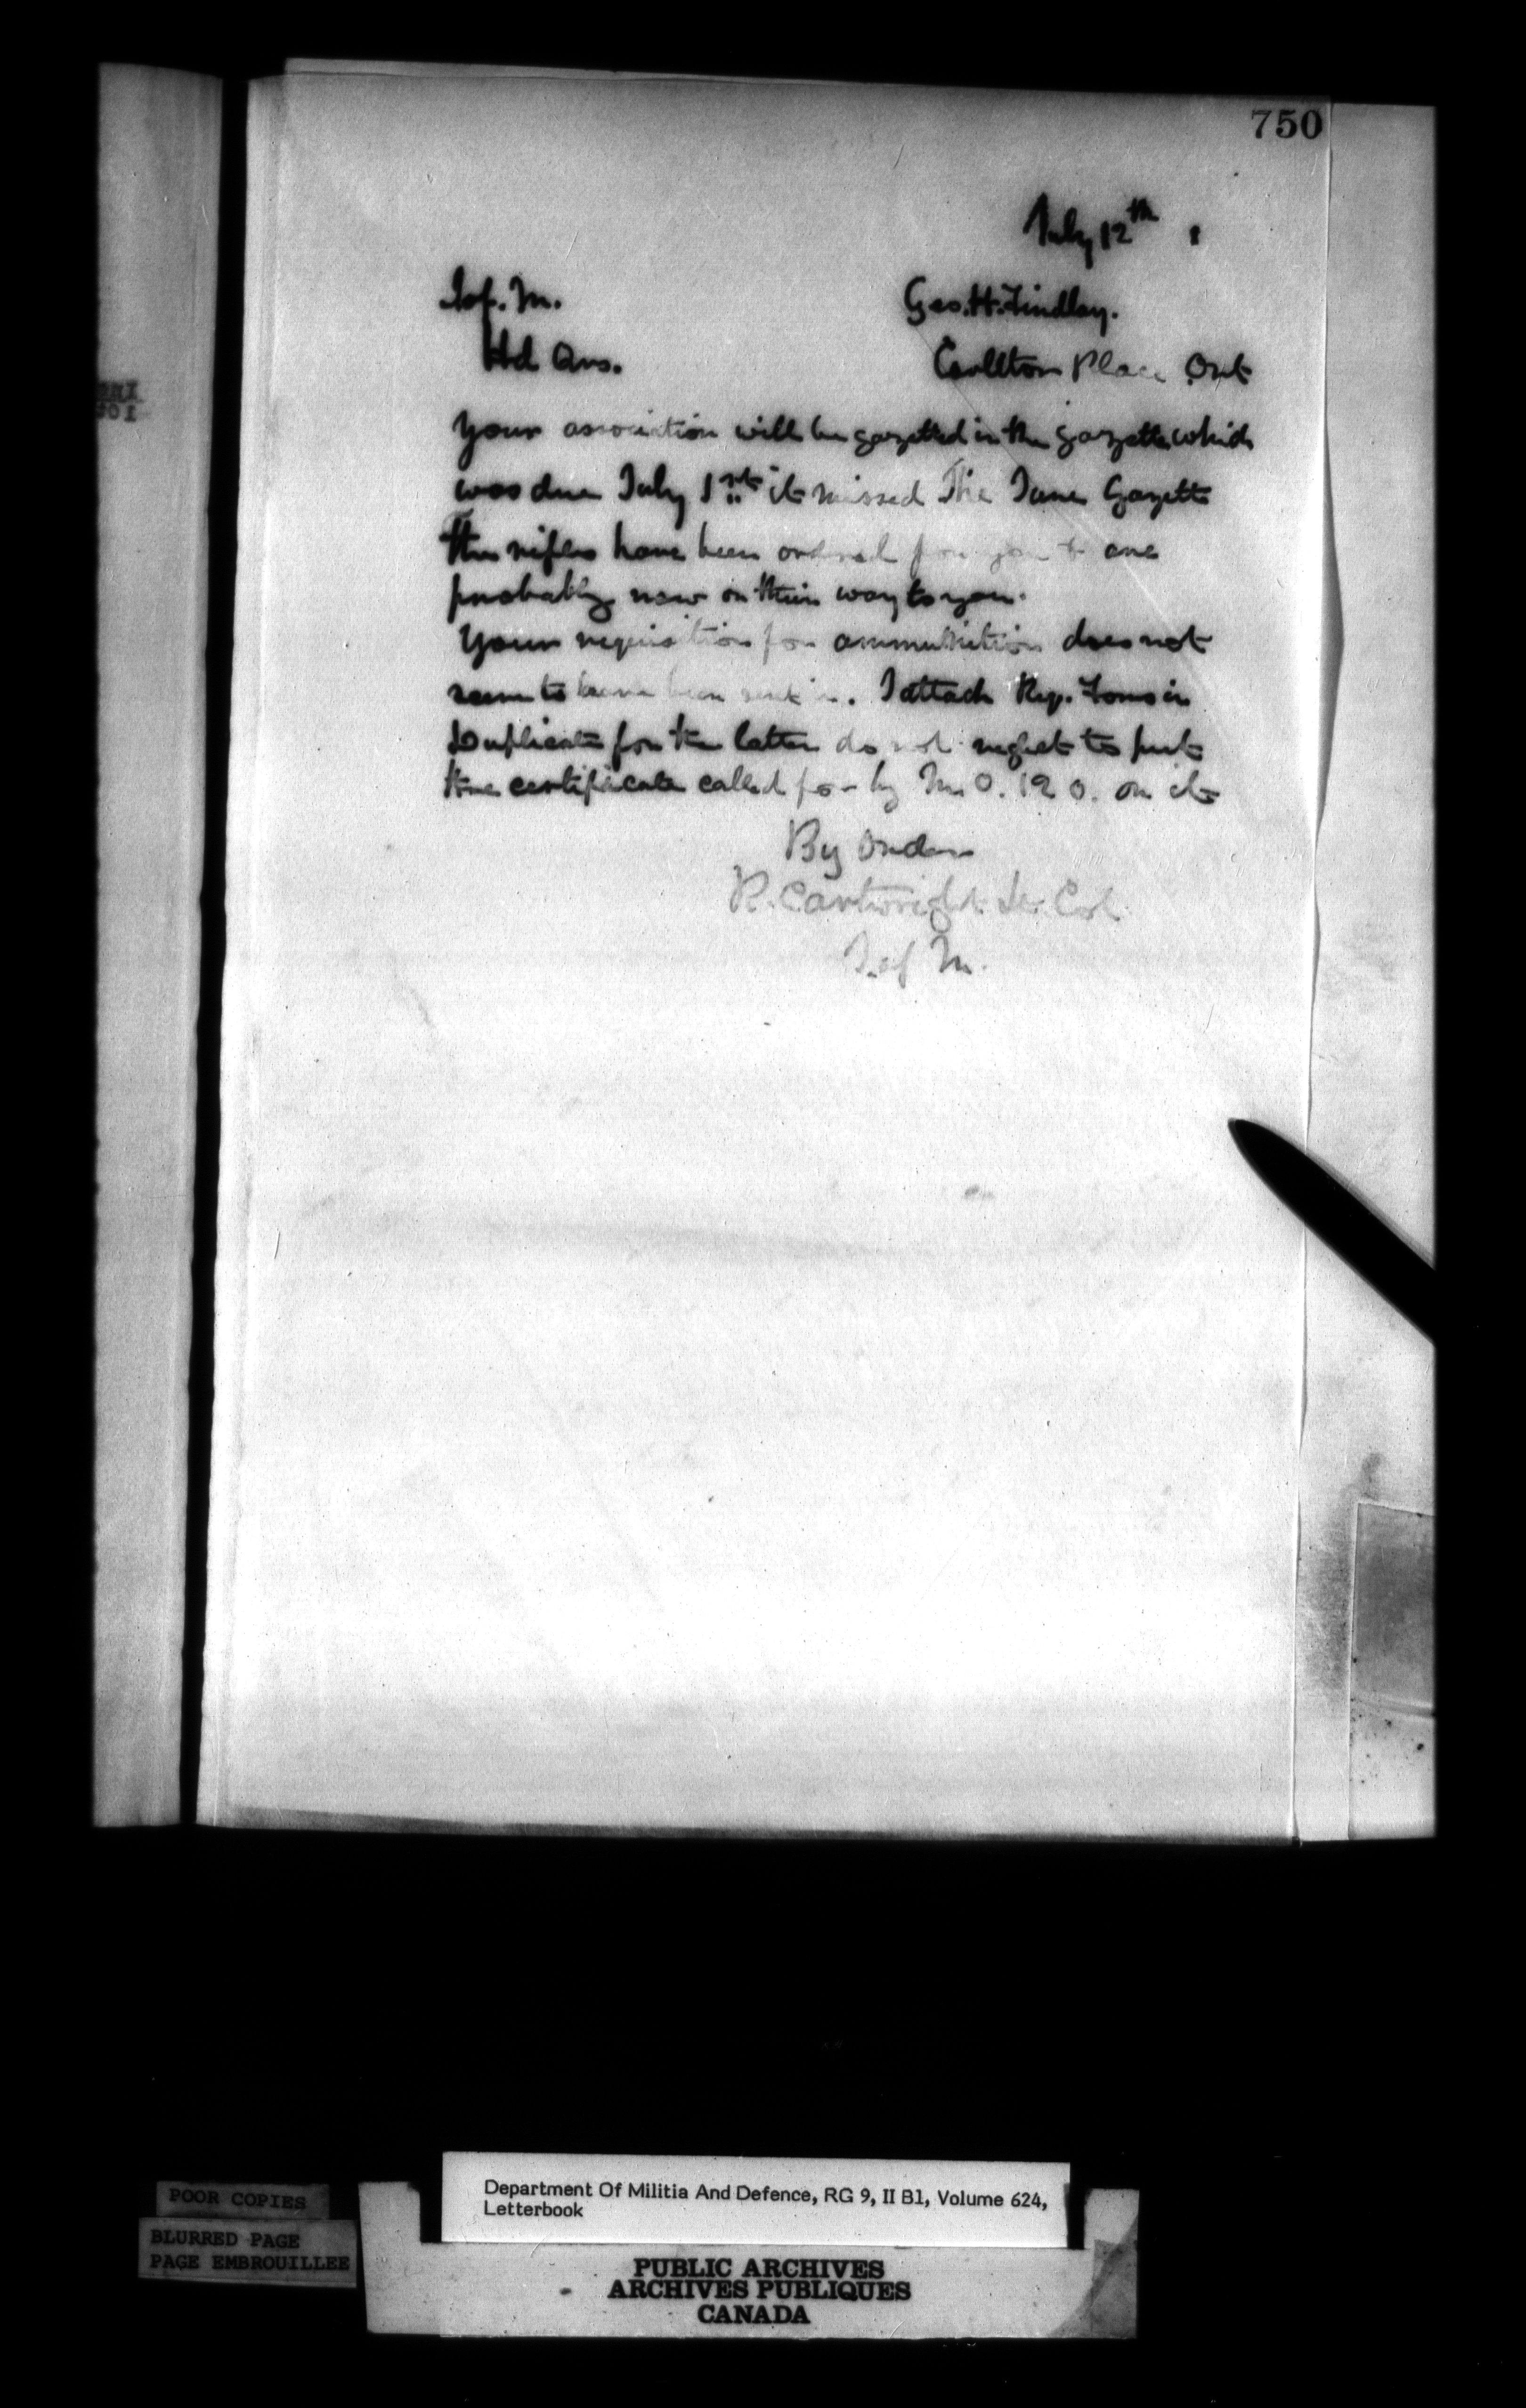 750
July 12th 1
I of. M. Geo. H. Findlay.
Hd Qrs. Carlton Place Ont
Your association will be gazetted in the gazette which
was due July 1st it missed The June Gazette
The rifles have been ordered for you & are
probably now on their way to you.
Your requisition for ammunition does not
seem to have been sent in. I attach Req. Forms in
Duplicate for the latter do not neglect to put
the certificate called for by M.O. 120. on it
By Order
R. Cartwright Lt. Col
I of M.
POOR COPIES
BLURRED PAGE
PAGE EMBROUILLEE
Department Of Militia And Defence, RG 9, II B1, Volume 624,
Letterbook
PUBLIC ARCHIVES
ARCHIVES PUBLIQUES
CANADA